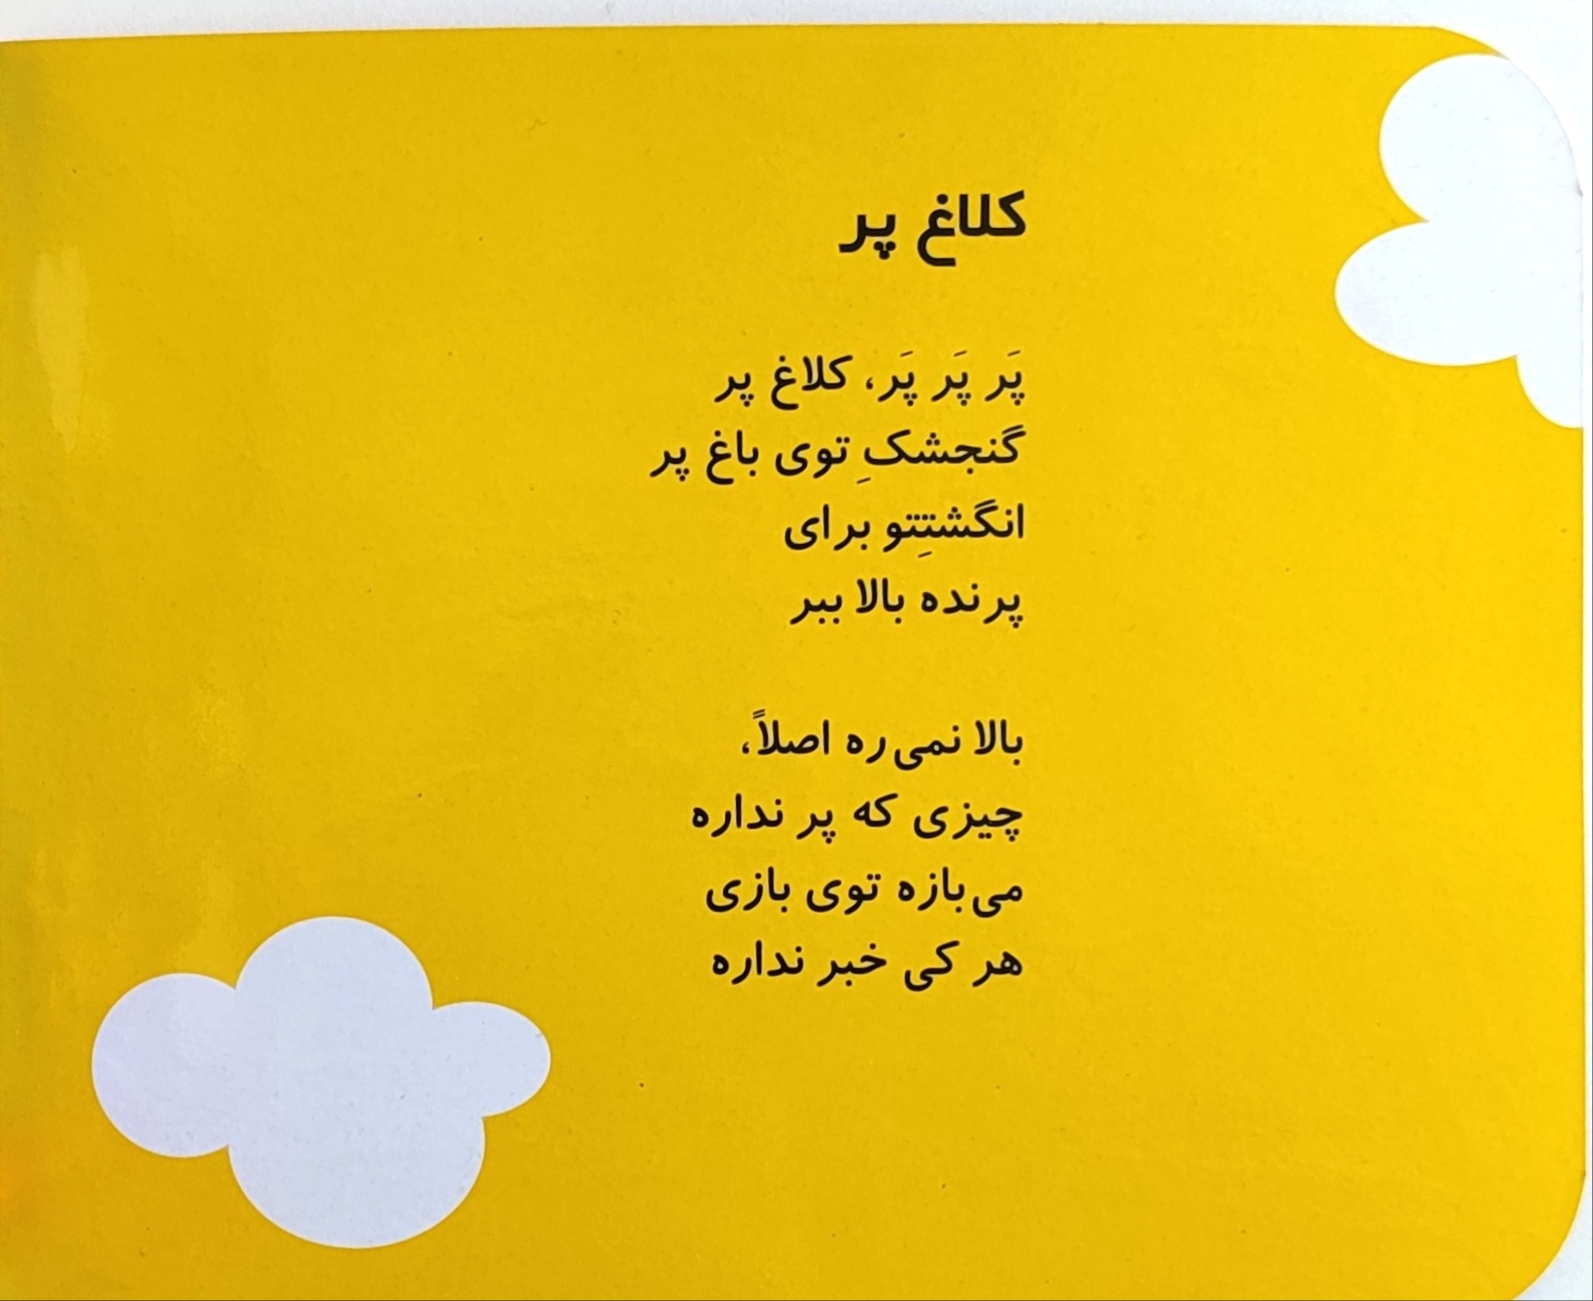 کلاغ پر
پَر پَر پَر، کلاغ پر
گنجشکِ توی باغ پر
انگشتِتو برای
پرنده بالا ببر
بالا نمی‌ره اصلاً،
چیزی که پر نداره
می‌بازه توی بازی
هر کی خبر نداره